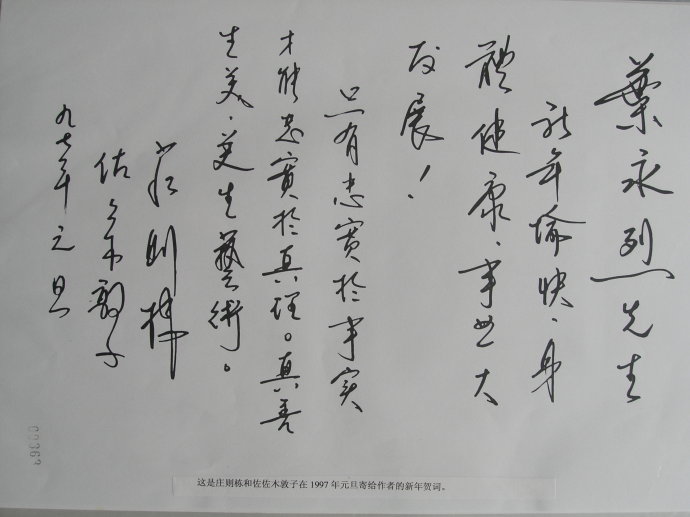 葉永烈先生
新年愉快、身
體健康、事业大
发展！
只有忠實於事实
才能忠實於真理。真善
生美，美生藝術。
庄则栋
佐々木敦子
九七年元旦
00363
这是庄则栋和佐佐木敦子在 1997 年元旦寄给作者的新年贺词。